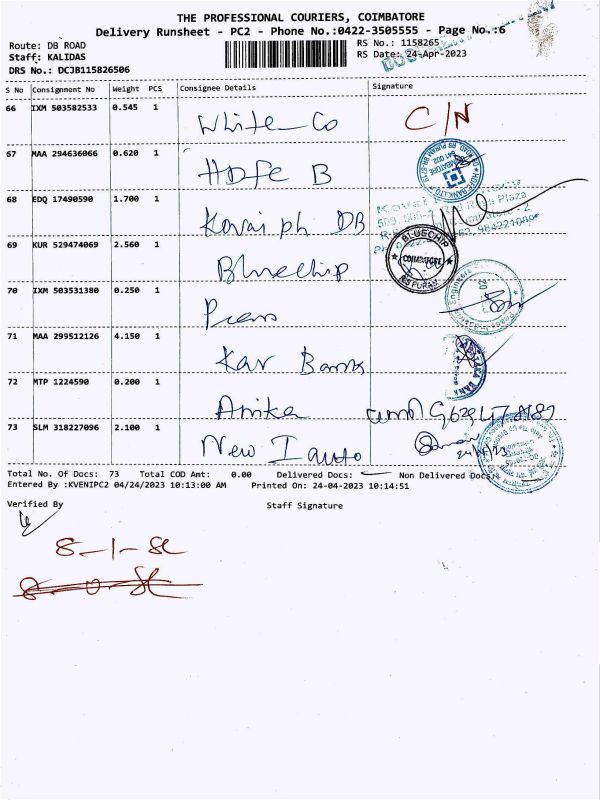 THE PROFESSIONAL COURIERS, COIMBATORE
Delivery Runsheet - PC2 - Phone No.:0422-3505555 - Page No.:6
Route: DB ROAD
RS No.: 1158265
Staff: KALIDAS
RS Date: 24-Apr-2023
DRS No.: DCJB115826506
S No Consignment No Weight PCS Consignee Details Signature
66 IXM 503582533 0.545 1 White Co C/N
67 MAA 294636066 0.620 1 HDFC B
68 EDQ 17490590 1.700 1 Kovai ph DB
69 KUR 529474069 2.560 1 Bluechip
BLUECHIP
COIMBATORE
RS PURAM
70 IXM 503531380 0.250 1
71 MAA 299512126 4.150 1 Kar Bank
72 MTP 1224590 0.200 1 Anika
73 SLM 318227096 2.100 1 New I auto
24/4/23
Total No. Of Docs: 73 Total COD Amt: 0.00 Delivered Docs: Non Delivered Docs:
Entered By :KVENIPC2 04/24/2023 10:13:00 AM Printed On: 24-04-2023 10:14:51
Verified By Staff Signature
8-1-SL